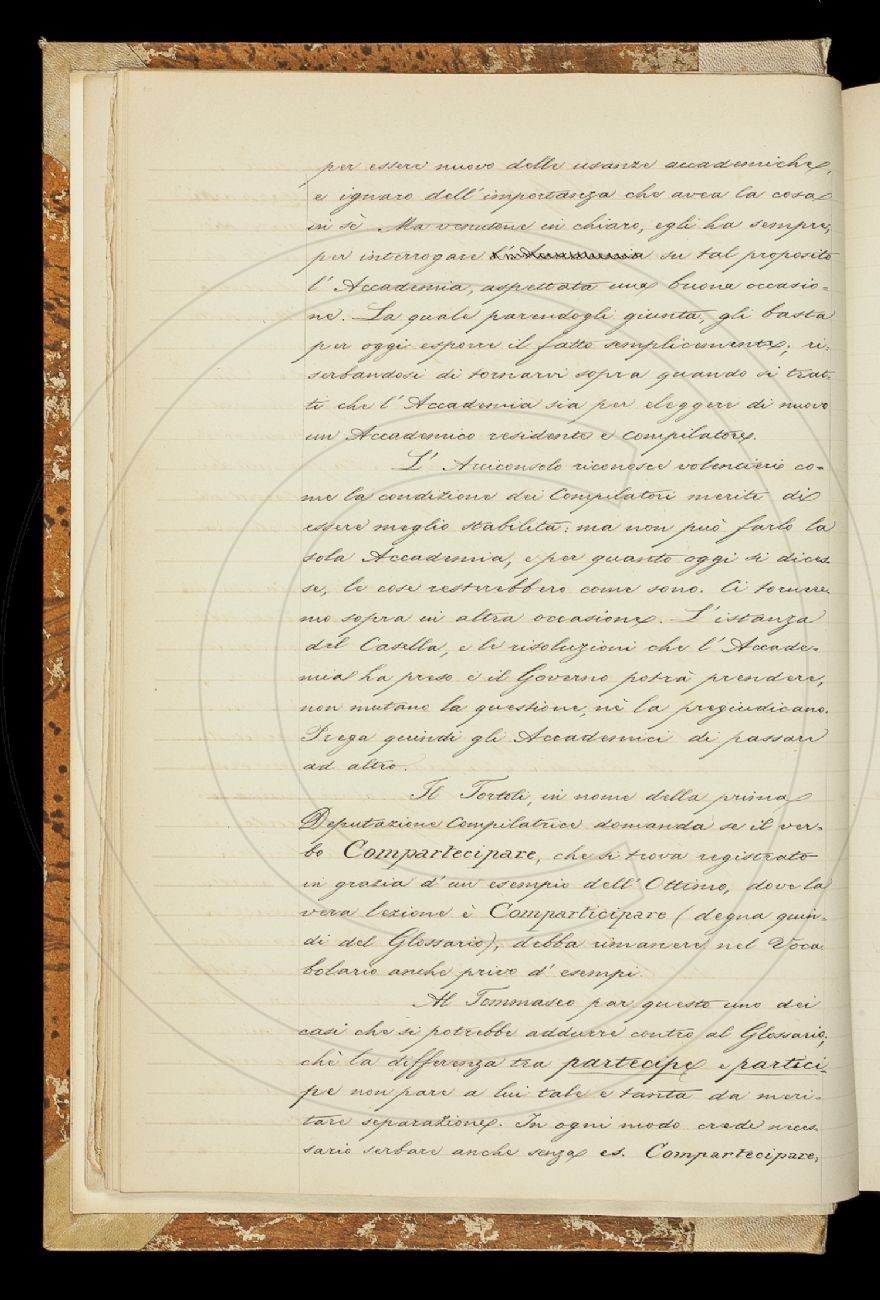 per essere nuovo delle usanze accademiche,
e ignaro dell'importanza che avea la cosa
in sè. Ma venutone in chiaro, egli ha sempre,
per interrogare l'Accademia su tal proposito
l'Accademia, aspettata una buona occasio-
ne. La quale parendogli giunta, gli basta
per oggi esporre il fatto semplicemente; ri-
serbandosi di tornarvi sopra quando si trat-
ti che l'Accademia sia per eleggere di nuovo
un Accademico residente e compilatore.
L'Arciconsolo riconosce volentieri co-
me la condizione dei Compilatori merite di
essere meglio stabilita: ma non può farlo la
sola Accademia, e per quanto oggi si dices-
se, le cose resterebbero come sono. Ci tornere-
mo sopra in altra occasione. L'istanza
del Casella, e le risoluzioni che l'Accade-
mia ha preso e il Governo potrà prendere,
non mutano la questione, nè la pregiudicano.
Prega quindi gli Accademici di passare
ad altro.
Il Tortoli, in nome della prima
Deputazione Compilatrice domanda se il ver-
bo Compartecipare, che si trova registrato
in grazia d'un esempio dell'Ottimo, dove la
vera lezione è Comparticipare (degna quin-
di del Glossario), debba rimanere nel Voca-
bolario anche privo d'esempi.
Al Tommaseo par questo uno dei
casi che si potrebbe addurre contro al Glossario;
chè la differenza tra partecipe e partici-
pe non pare a lui tale e tanta da meri-
tare separazione. In ogni modo crede neces-
sario serbare anche senza es. Compartecipare,